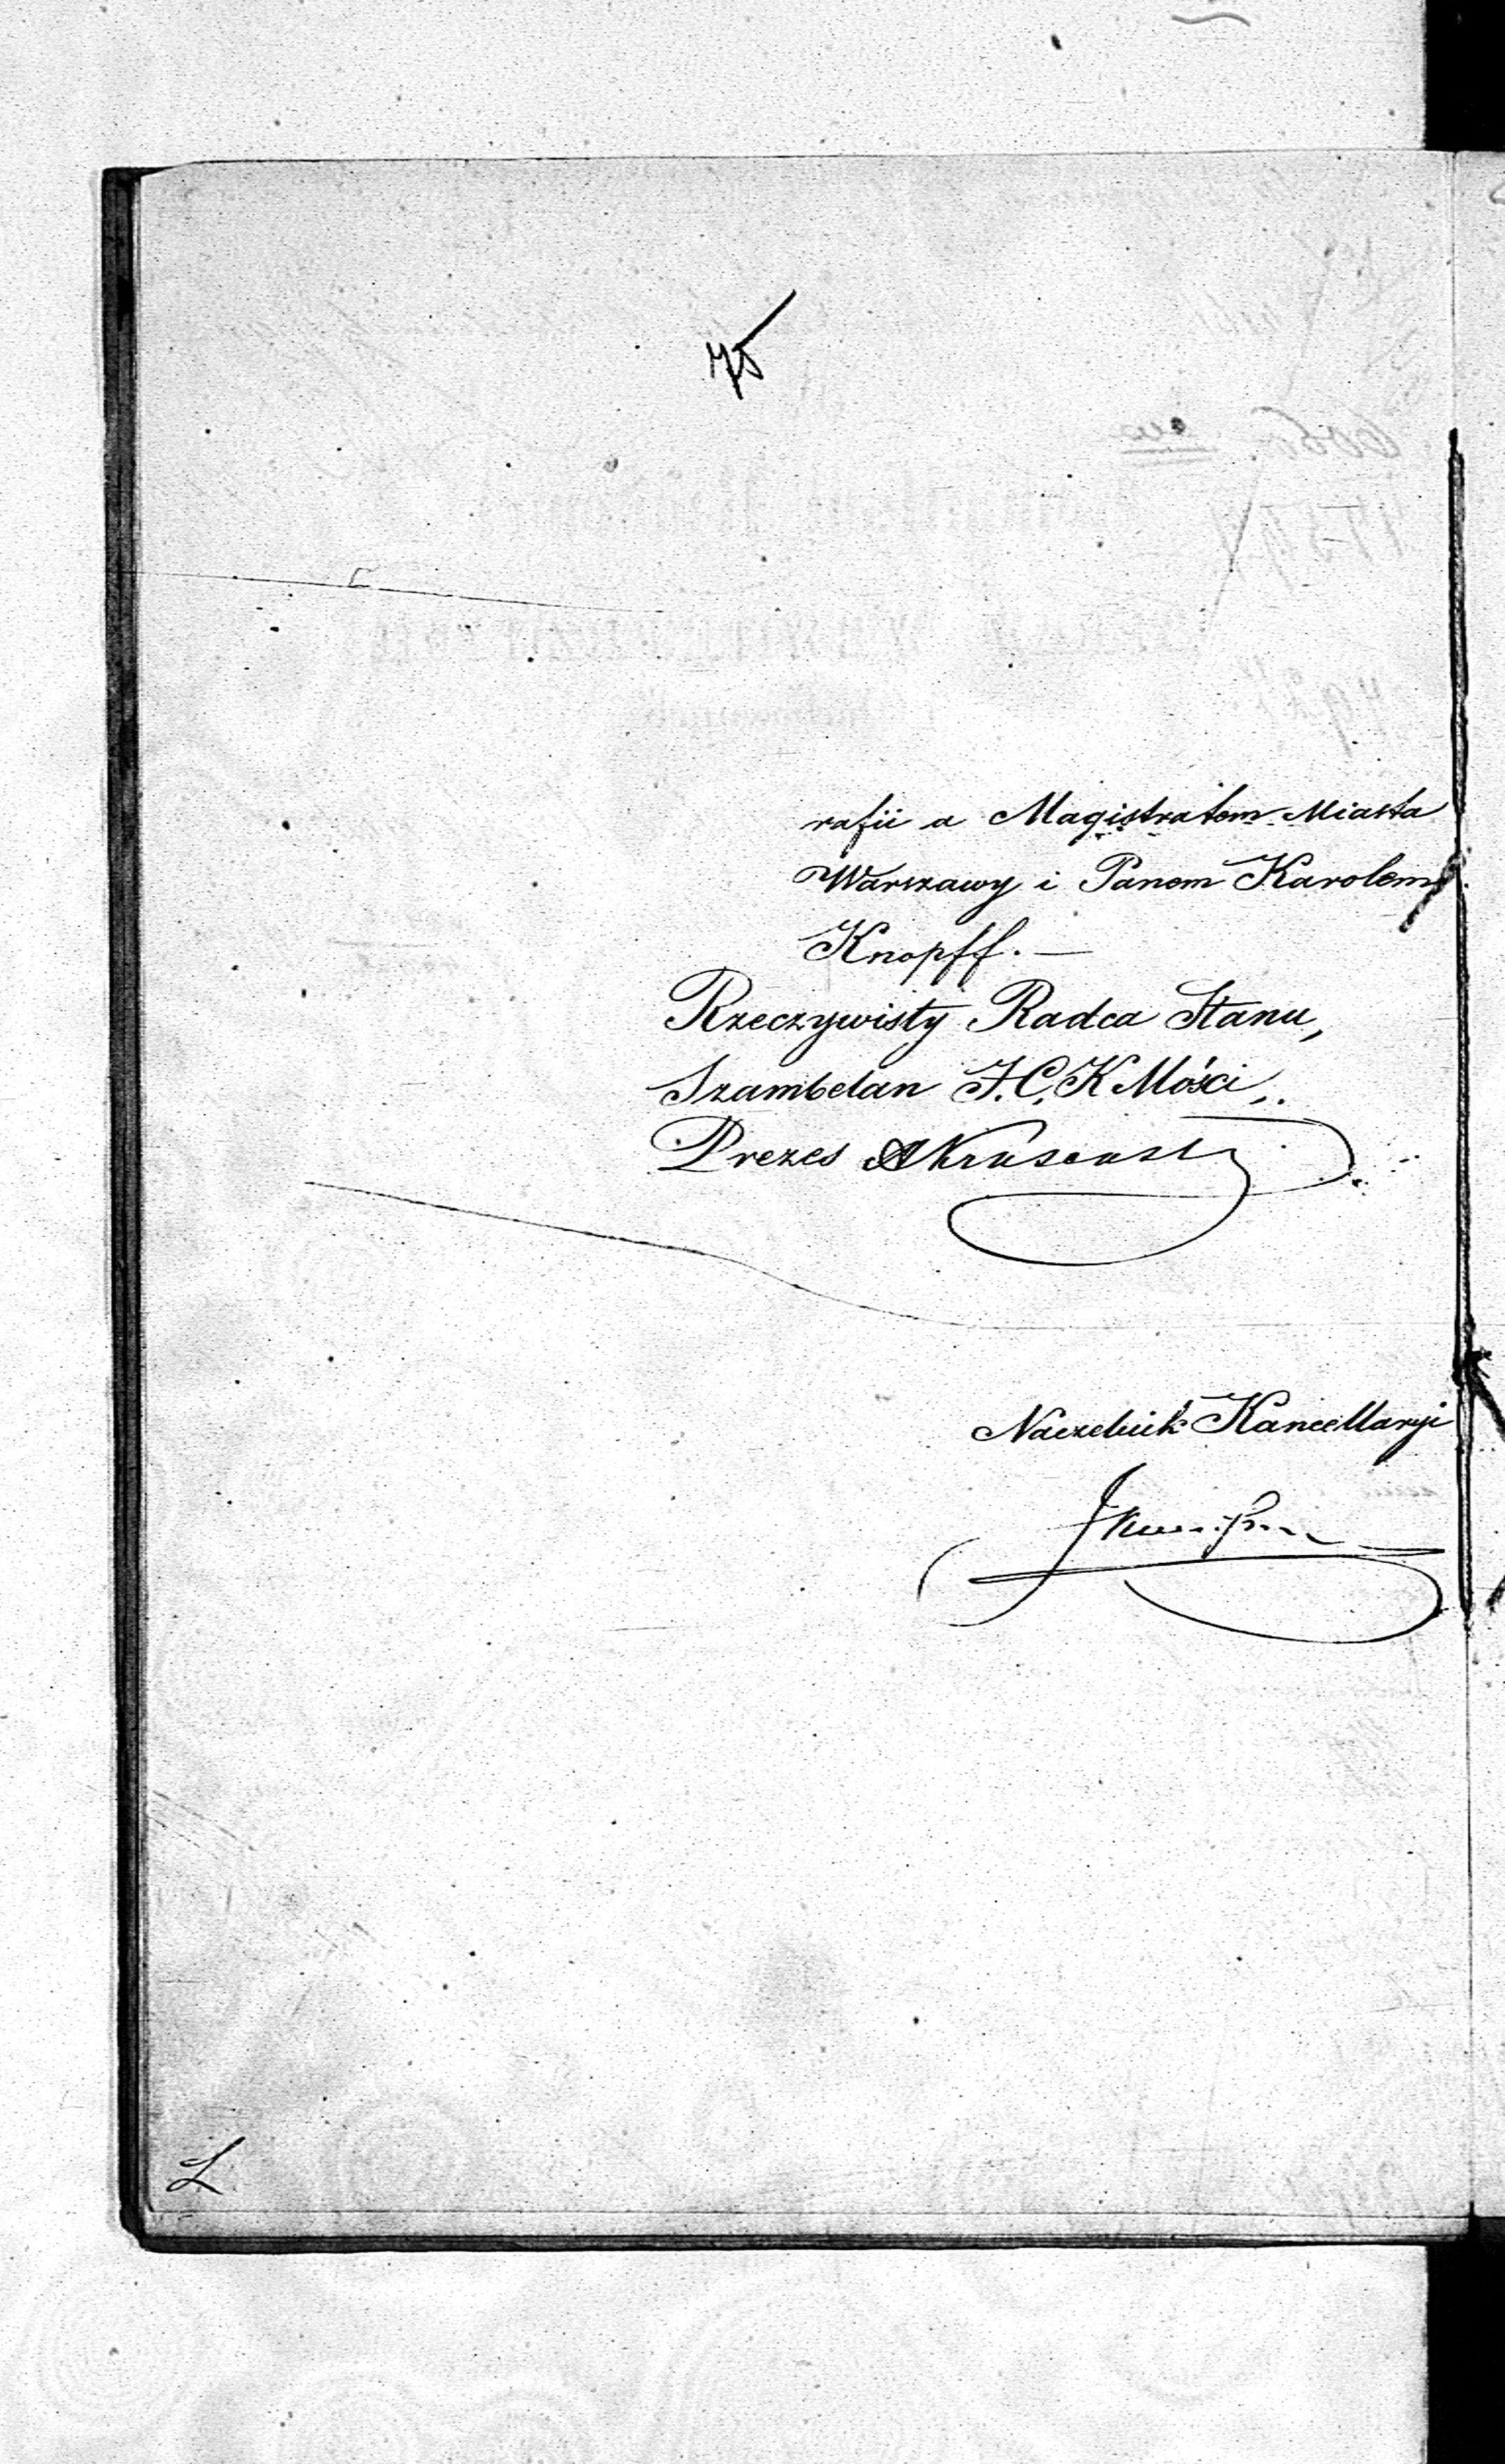 75
rafii a Magistratem Miasta
Warszawy i Panem Karolem
Knopff. —
Rzeczywisty Radca Stanu,
Szambelan J.C.K Mości,
Prezes
Naczelnik Kancellaryi
L